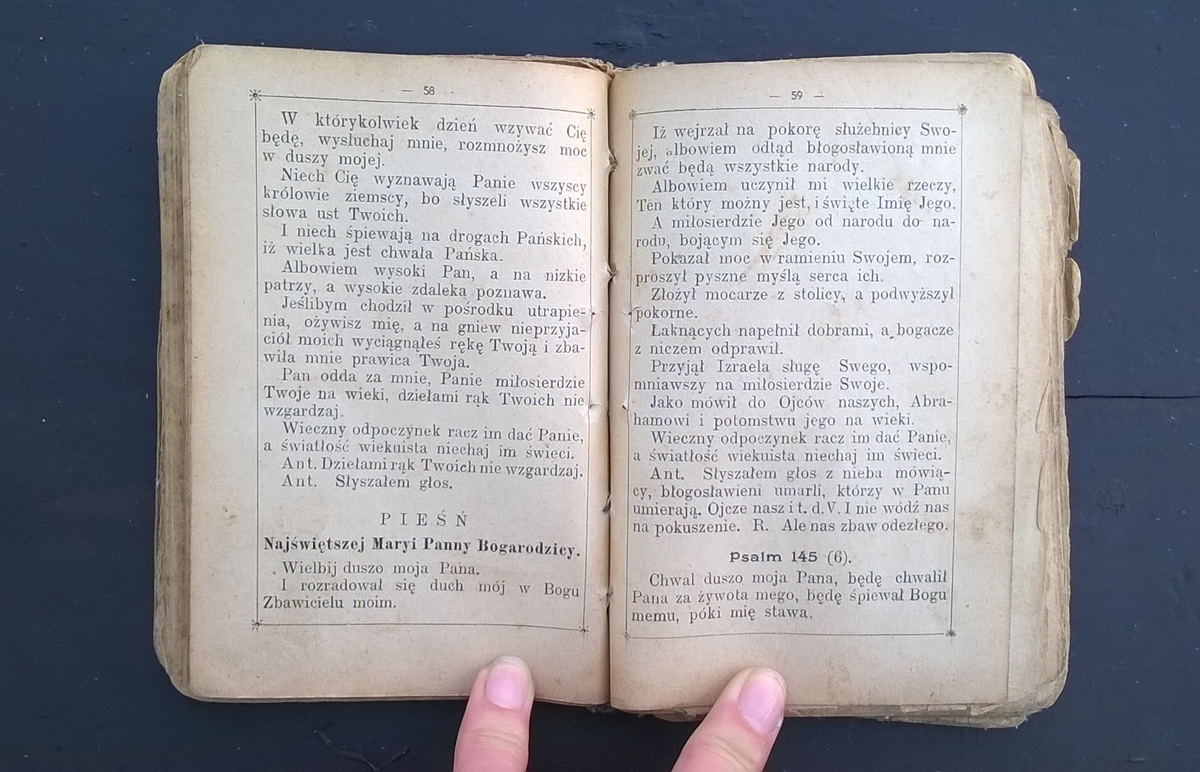 — 58 -
W którykolwiek dzień wzywać Cię
będę, wysłuchaj mnie, rozmnożysz moc
w duszy mojej.
Niech Cię wyznawają Panie wszyscy
królowie ziemscy, bo słyszeli wszystkie
słowa ust Twoich.
I niech śpiewają na drogach Pańskich,
iż wielka jest chwała Pańska.
Albowiem wysoki Pan, a na nizkie
patrzy, a wysokie zdaleka poznawa.
Jeślibym chodził w pośrodku utrapie-
nia, ożywisz mię, a na gniew nieprzyja-
ciół moich wyciągnąłeś rękę Twoją i zba-
wiła mnie prawica Twoja.
Pan odda za mnie, Panie miłosierdzie
Twoje na wieki, dziełami rąk Twoich nie
wzgardzaj.
Wieczny odpoczynek racz im dać Panie,
a światłość wiekuista niechaj im świeci.
Ant. Dziełami rąk Twoich nie wzgardzaj.
Ant. Słyszałem głos.
PIEŚŃ
Najświętszej Maryi Panny Bogarodzicy.
Wielbij duszo moja Pana.
I rozradował się duch mój w Bogu
Zbawicielu moim.
— 59 —
Iż wejrzał na pokorę służebnicy Swo-
jej, albowiem odtąd błogosławioną mnie
zwać będą wszystkie narody.
Albowiem uczynił mi wielkie rzeczy,
Ten który możny jest, i święte Imię Jego.
A miłosierdzie Jego od narodu do na-
rodu, bojącym się Jego.
Pokazał moc w ramieniu Swojem, roz-
proszył pyszne myślą serca ich.
Złożył mocarze z stolicy, a podwyższył
pokorne.
Łaknących napełnił dobrami, a bogacze
z niczem odprawił.
Przyjął Izraela sługę Swego, wspo-
mniawszy na miłosierdzie Swoje.
Jako mówił do Ojców naszych, Abra-
hamowi i potomstwu jego na wieki.
Wieczny odpoczynek racz im dać Panie,
a światłość wiekuista niechaj im świeci.
Ant. Słyszałem głos z nieba mówią-
cy, błogosławieni umarli, którzy w Panu
umierają. Ojcze nasz i t. d. V. I nie wódź nas
na pokuszenie. R. Ale nas zbaw odezłego.
Psalm 145 (6).
Chwal duszo moja Pana, będę chwalił
Pana za żywota mego, będę śpiewał Bogu
memu, póki mię stawa.